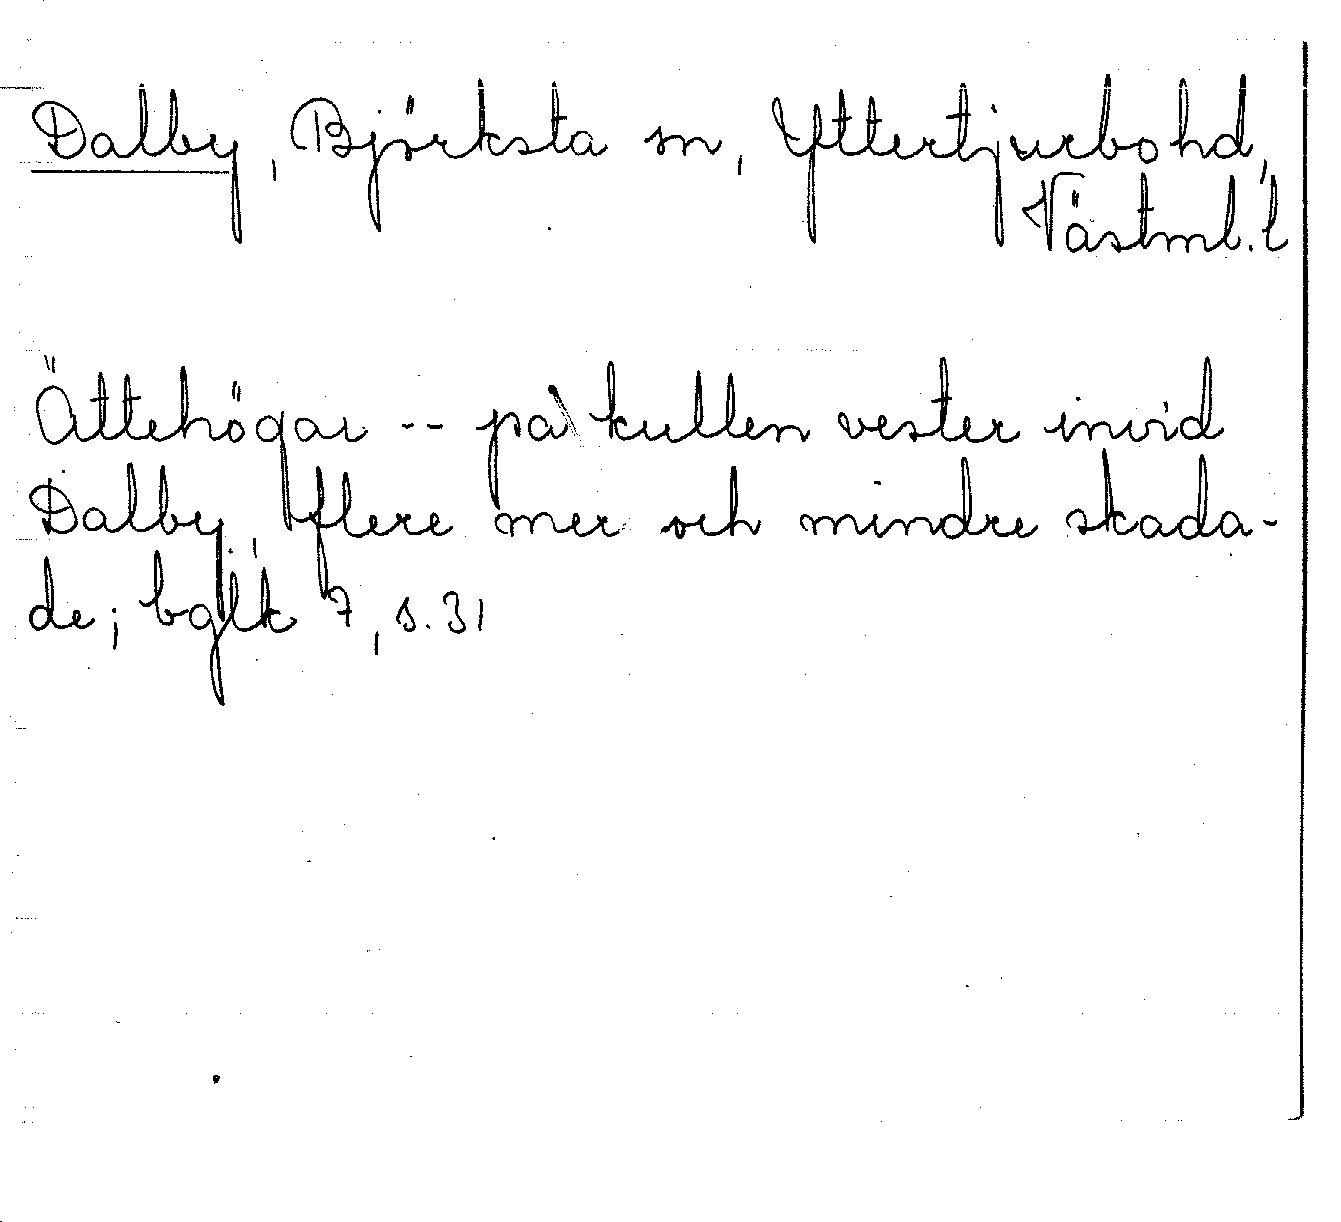 Dalby, Björksta sn, Yttertjurbo hd,
Västml. l
Ättehögar -- på kullen vester invid
Dalby, flere mer och mindre skada-
de; bglk 7, s. 31